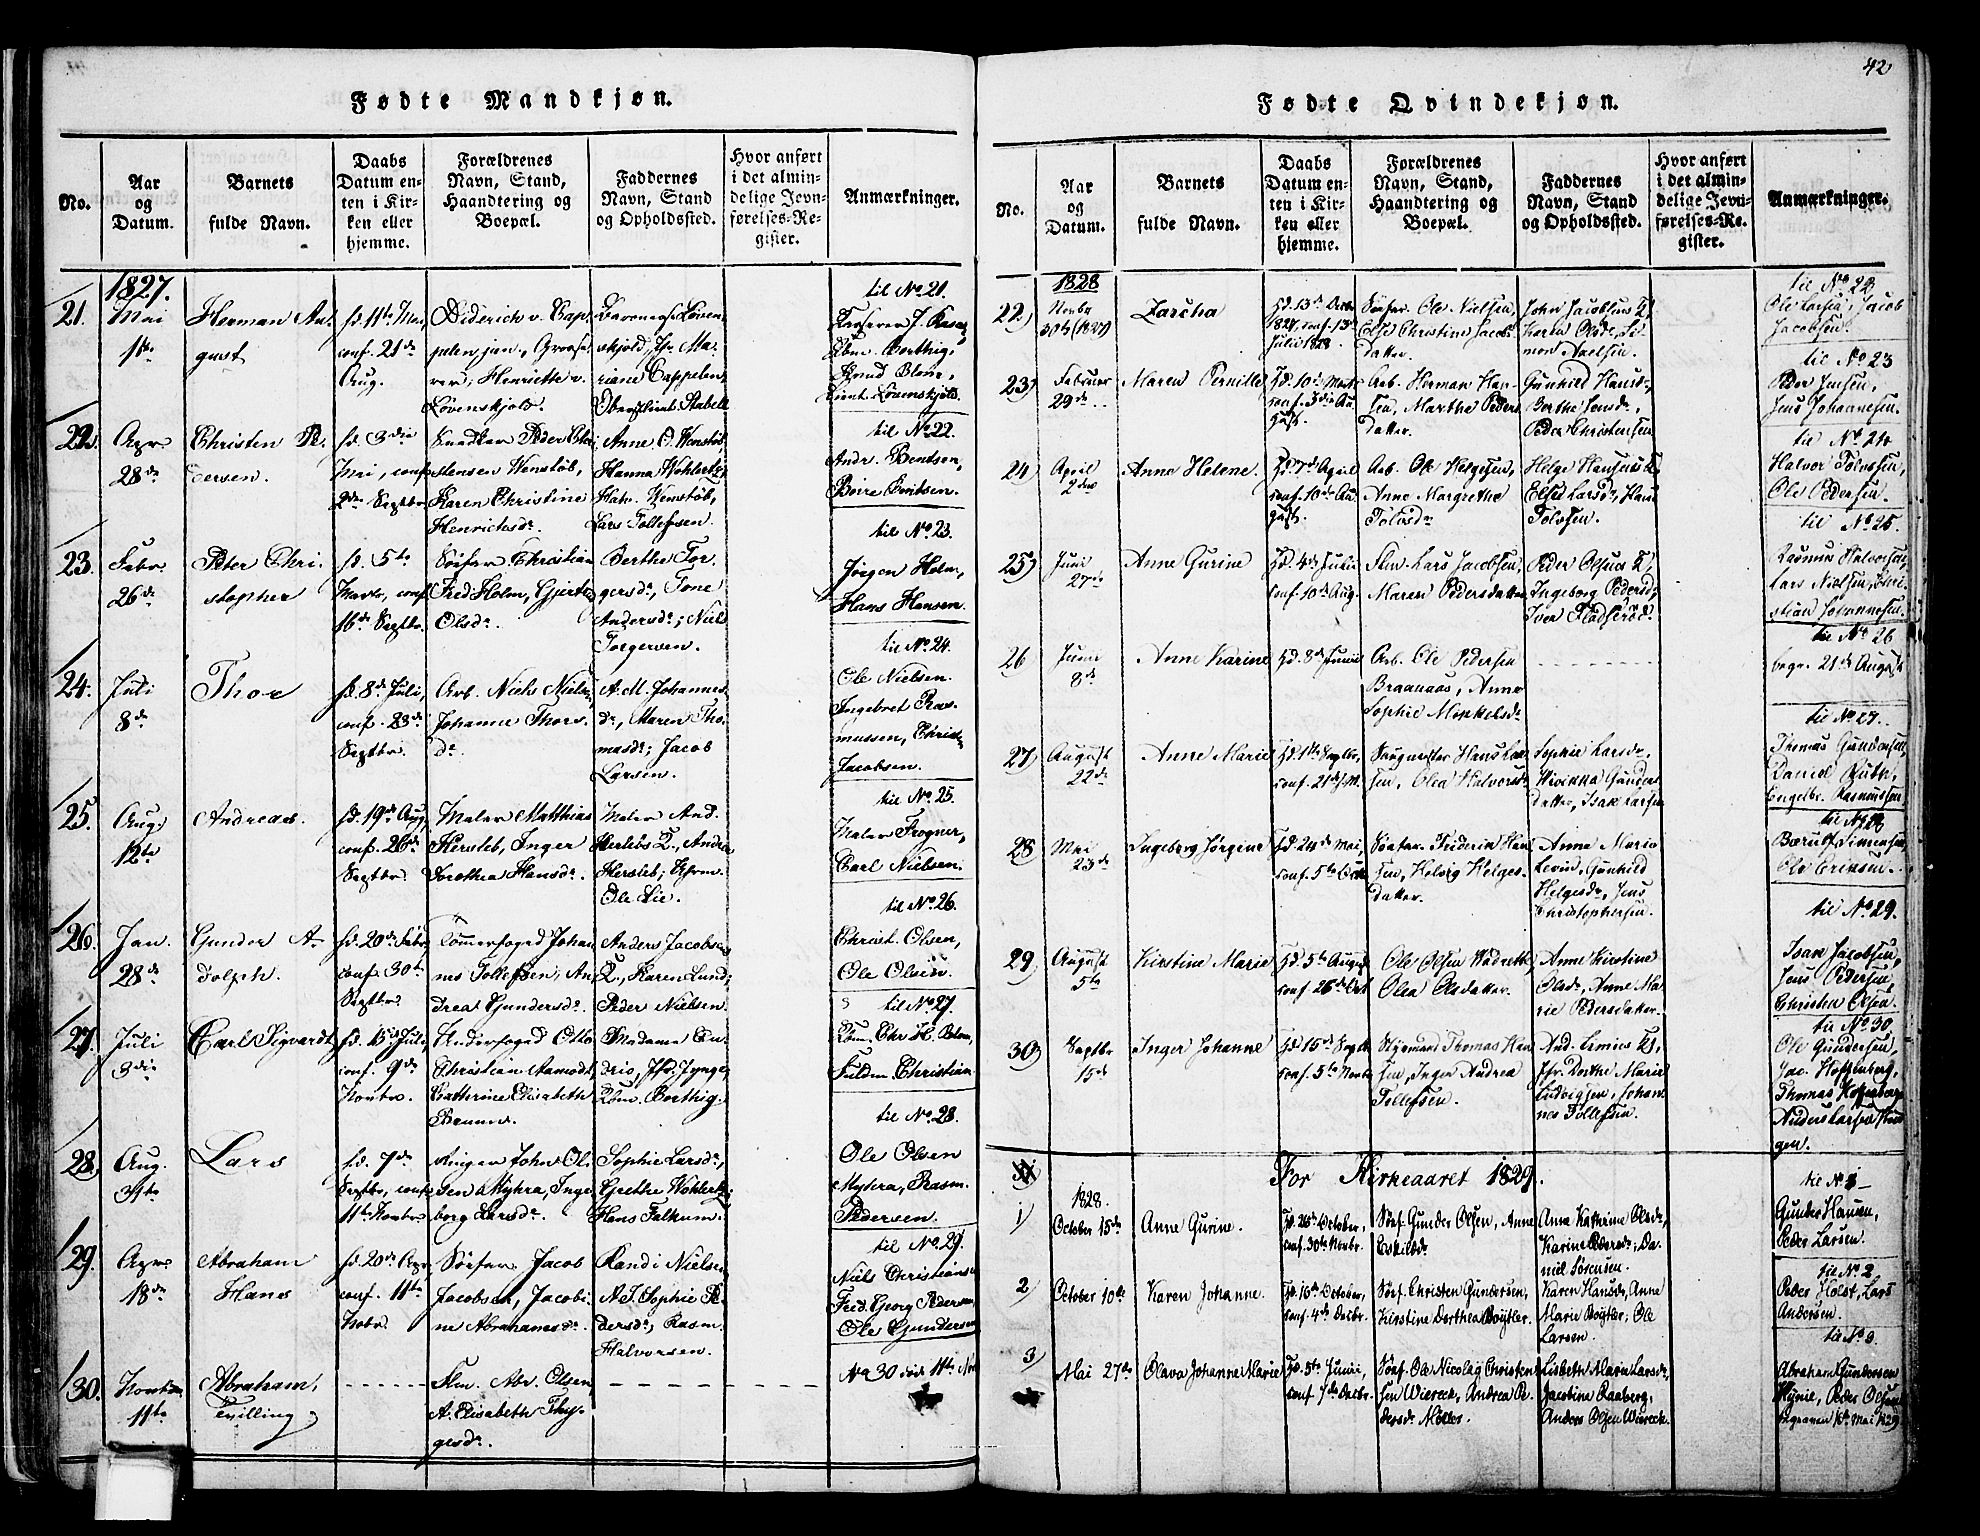 42
Fødte Mandkjøn.
No.
Aar
og
Datum.
Barnets
fulde Navn.
Daabs
Datum en-
ten i Kir-
ken eller
hjemme.
Forældrenes
Navn, Stand,
Haandtering og
Boepæl.
Faddernes
Navn, Stand
og Opholdssted.
Hvor anført
i det almin-
delige Jevn-
førelses-Re-
gister.
Anmærkninger.
1827.
21.
Mai
11te
Herman Au-
gust
fd. 11te Mai,
conf. 21de
Aug.
Diderich v. Cap-
pelen jun., Grosse-
rer, Henriette v.
Løvenskjold.
Baronesse Løven-
skjold, Fr. Ma-
riane Cappelen,
Oberstlieut. Stabell
til No. 21.
Knud Blom,
Lieut. Løvenskjold.
22.
Apr.
28de
Christen Pe-
dersen.
fd. 3die
Mai, conf.
2den Septbr.
Peder Chri-
stensen Wenstøb,
Karen Christine
Henriksdr.
Anne O. Wenstøb,
Hanna Wohlertz,
Halv. Wenstøb,
Lars Tollefsen.
til No. 22.
Andr. Bentsen,
Boire Bentsen.
23.
Febr.
26de
Peter Chri-
stopher
fd. 5te
Marts, conf.
16de Septbr.
Søefar. Christian
Fred. Holm, Gjertru
Olsdr.
Berthe Tor-
gersdr., Tone
Andersdr.; Niels
Torgersen.
til No. 23.
Jørgen Holm,
Hans Hansen.
24.
Juli
8de
Thor
fd. 8de Juli,
conf. 23de
Septbr.
Arb. Niels Nielsen,
Johanne Thors-
dr.
A. M. Johannes-
dr., Maren Tho-
masdr.; Jacob
Larsen.
til No. 24.
Ole Nielsen.
Ingebret Ras-
mussen, Christ.
Jacobsen.
25.
Aug.
12te
Andreas.
fd. 19de Aug.
conf. 26de
Septbr.
Maler Matthias
Hersleb, Inger
Dorothea Hansdr.
Maler And.
Herslebs K., Andrea
Hersleb;
Ole Lie.
til No. 25.
Maler Frogner,
Carl Nielsen.
26.
Jan.
28de
Gunder A-
dolph.
fd. 20de Febr.
conf. 30te
Septbr.
Tømmerfoged Johan-
nes Tollefsen, An-
drea Gundersdr.
Anders Jacobsens
K., Karen Lund;
Peder Nielsen.
til No. 26.
Christ. Olsen,
Ole Olsen.
27.
Juli
3die
Carl Sigvardt
fd. 15de Juli,
conf. 9de
Novbr.
Underfoged Otto
Christian Aamodt,
Cathrine Elisabeth
Brunner.
Madame
Jfr. Jynge,
Kbm. Borthig.
til No. 27.
Kbm. Chr. H. Blom,
Fuldm. Christian
28.
Aug.
31te
Lars
fd. 7de
Septbr., conf.
11te Novbr.
Ringer John Ol-
sen Myhra, Inge-
borg Larsdr.
Sophie Larsdr.,
Grethe Wohlertz,
Hans Falkum.
til No. 28.
Ole Olsen
Myhra, Rasm.
Pedersen.
29.
Apr.
18de
Abraham
Hans
fd. 20de Apr.,
conf. 11te
Novbr.
Søefar. Jacob
Jacobsen, Jacobi-
ne Abrahamsdr.
Randi Nielsen,
A. J. Sophie Pe-
dersdr., Rasm.
Halvorsen.
til No. 29.
Niels Christians.
Fred. Georg Pedersen,
Ole Gundersen.
30.
Novbr.
11te
Abraham,
Tvilling
Slm. Abr. Olsen,
A. Elisabeth Thy-
gesdr.
No. 30 død 11te Nov.
Fødte Qvindekjøn.
No.
Aar
og
Datum.
Barnets
fulde Navn.
Daabs
Datum en-
ten i Kir-
ken eller
hjemme.
Forældrenes
Navn, Stand,
Haandtering og
Boepæl.
Faddernes
Navn, Stand
og Opholdssted.
Hvor anført
i det almin-
delige Jevn-
førelses-Re-
gister.
Anmærkninger.
1828
22)
Novbr
30te (1827)
Zarcha
Hd. 13de Decbr
1827, conf. 13de
Julii 1828
Søefar. Ole Nielsen,
Else Christine Jacobs-
datter.
John Jacobsens K.,
Karen Olsdr., Si-
mon Axelsen.
til No. 22
Ole Larsen, Jacob
Jacobsen.
23)
Februar
29de
Maren Pernille
Hd. 10de Marts
conf. 3die Au-
gust.
Arb. Herman Han-
sen, Marthe Peders-
datter.
Gunhild Hansdr.,
Berthe Jensdr.,
Peder Christensen
til No. 23
Peder Jensen,
Jens Johannesen.
24)
April
2den
Anne Helene.
Hd. 7de April
conf. 10de Au-
gust.
Arb. Ole Helgesen,
Anne Margrethe
Tolvsdr
Helge Hansens K.,
Else Larsdr., Hans
Tolvsen.
til No. 24
Halvor Tolvsen,
Ole Pedersen.
25)
Juni
27de
Anne Gurine
Hd. 4de Julii
conf. 10de Aug.
Slm. Lars Jacobsen,
Maren Pedersdatter
Peder Olsens K.,
Ingeborg Pedersdr,
Iver Fladserød.
til No. 25.
Rasmus Halvorsen,
Lars Nielsen, Chri-
stian Johannesen.
26
Junii
8de
Anne Karine
Hd. 8de Junii
Arb. Ole Pedersen
Braanaas, Anne
Sophie Mickelsdr
til No. 26
begr. 21de August
27)
August
22de
Anne Marie
Hd. 1ste Septbr,
conf. 21de s. M.
Saugmester Hans Lar-
sen, Olea Halvorsdr
Sophie Larsdr,
Gunders-
datter, Isak Larsen
til No. 27.
Thomas Gundersen,
Daniel Ruth,
Engelbr. Rasmussen
28)
Mai
23de
Ingeborg Jørgine
Hd. 24de Mai,
conf. 5te Octbr
Skoster. Friderik Han-
sen, Helvig Helges-
datter.
Anne Marie
Levin, Gunhild
Helgesdr, Jens
Christophersen.
til No. 28
Børulf Simensen,
Ole Eriksen.
29)
August
5te
Kirstine Marie
Hd. 5te August
conf. 26de Oct
Ole Olsen Wadrette
Olea Olsdatter.
Anne Kirstine
Olsdr, Anne Ma-
rie Pedersdatter.
til No. 29.
Isak Jacobsen,
Jens Pedersen,
Christen Olsen.
30)
Septbr
15de
Inger Johanne
Hd. 15de Septbr
conf. 5te Novbr
Styrmand Thomas Han-
sen, Inger Andrea
Tollefsen.
And. Linies K.,
Jfr. Dorthe Marie
Ludvigsen, Johan-
nes Tollefsen.
til No. 30.
Ole Gundersen,
Jac. Hoffenberg,
Thomas Hoffenberg
Anders Larsen
gen.
For Kirkeaaret 1829.
1)
1828.
October 15de
Anne Gurine.
Hd. 26de October,
conf. 30te Novbr.
Søef. Gunder Olsen, Anne
Eskildsdr
Anne Kathrine Olsdr,
Karine Pedersdr; Da-
niel Sørensen.
til No 1
Gunder Hansen,
Peder Larsen.
2)
October 10de
Karen Johanne.
Hd. 16de October,
conf. 4de Decbr.
Søef. Christen Gundersen,
Kirstine Dorthea Boytler.
Karen Hansdr, Anne
Marie Boytler; Ole
Larsen.
til No. 2
Peder Holst, Lars
Andersen.
3)
Mai 27de
Olava Johanne Marie
Hd. 5te Junii,
conf. 7de Decbr.
Søef. Ole Nicolay Christen-
sen Wiereck, Andrea Pe-
dersdr Møller.
Lisbeth Marie Larsdr,
Jacobine Raaberg;
Anders Olsen Wiereck.
til No 3.
Abraham Gundersen
Peder Olsen
begraven Mai 1829